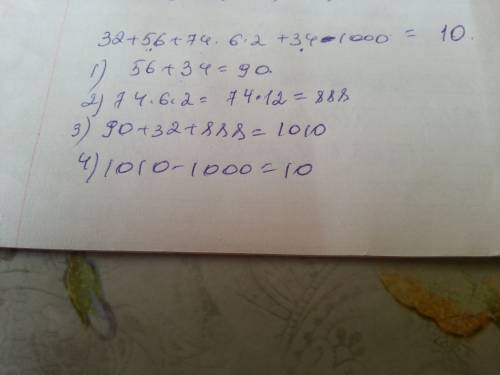 32+56+74·6·2+34-1000 = 10.
1) 56+34=90
2) 74·6·2=74·12=888
3) 90+32+888=1010
4) 1010-1000=10